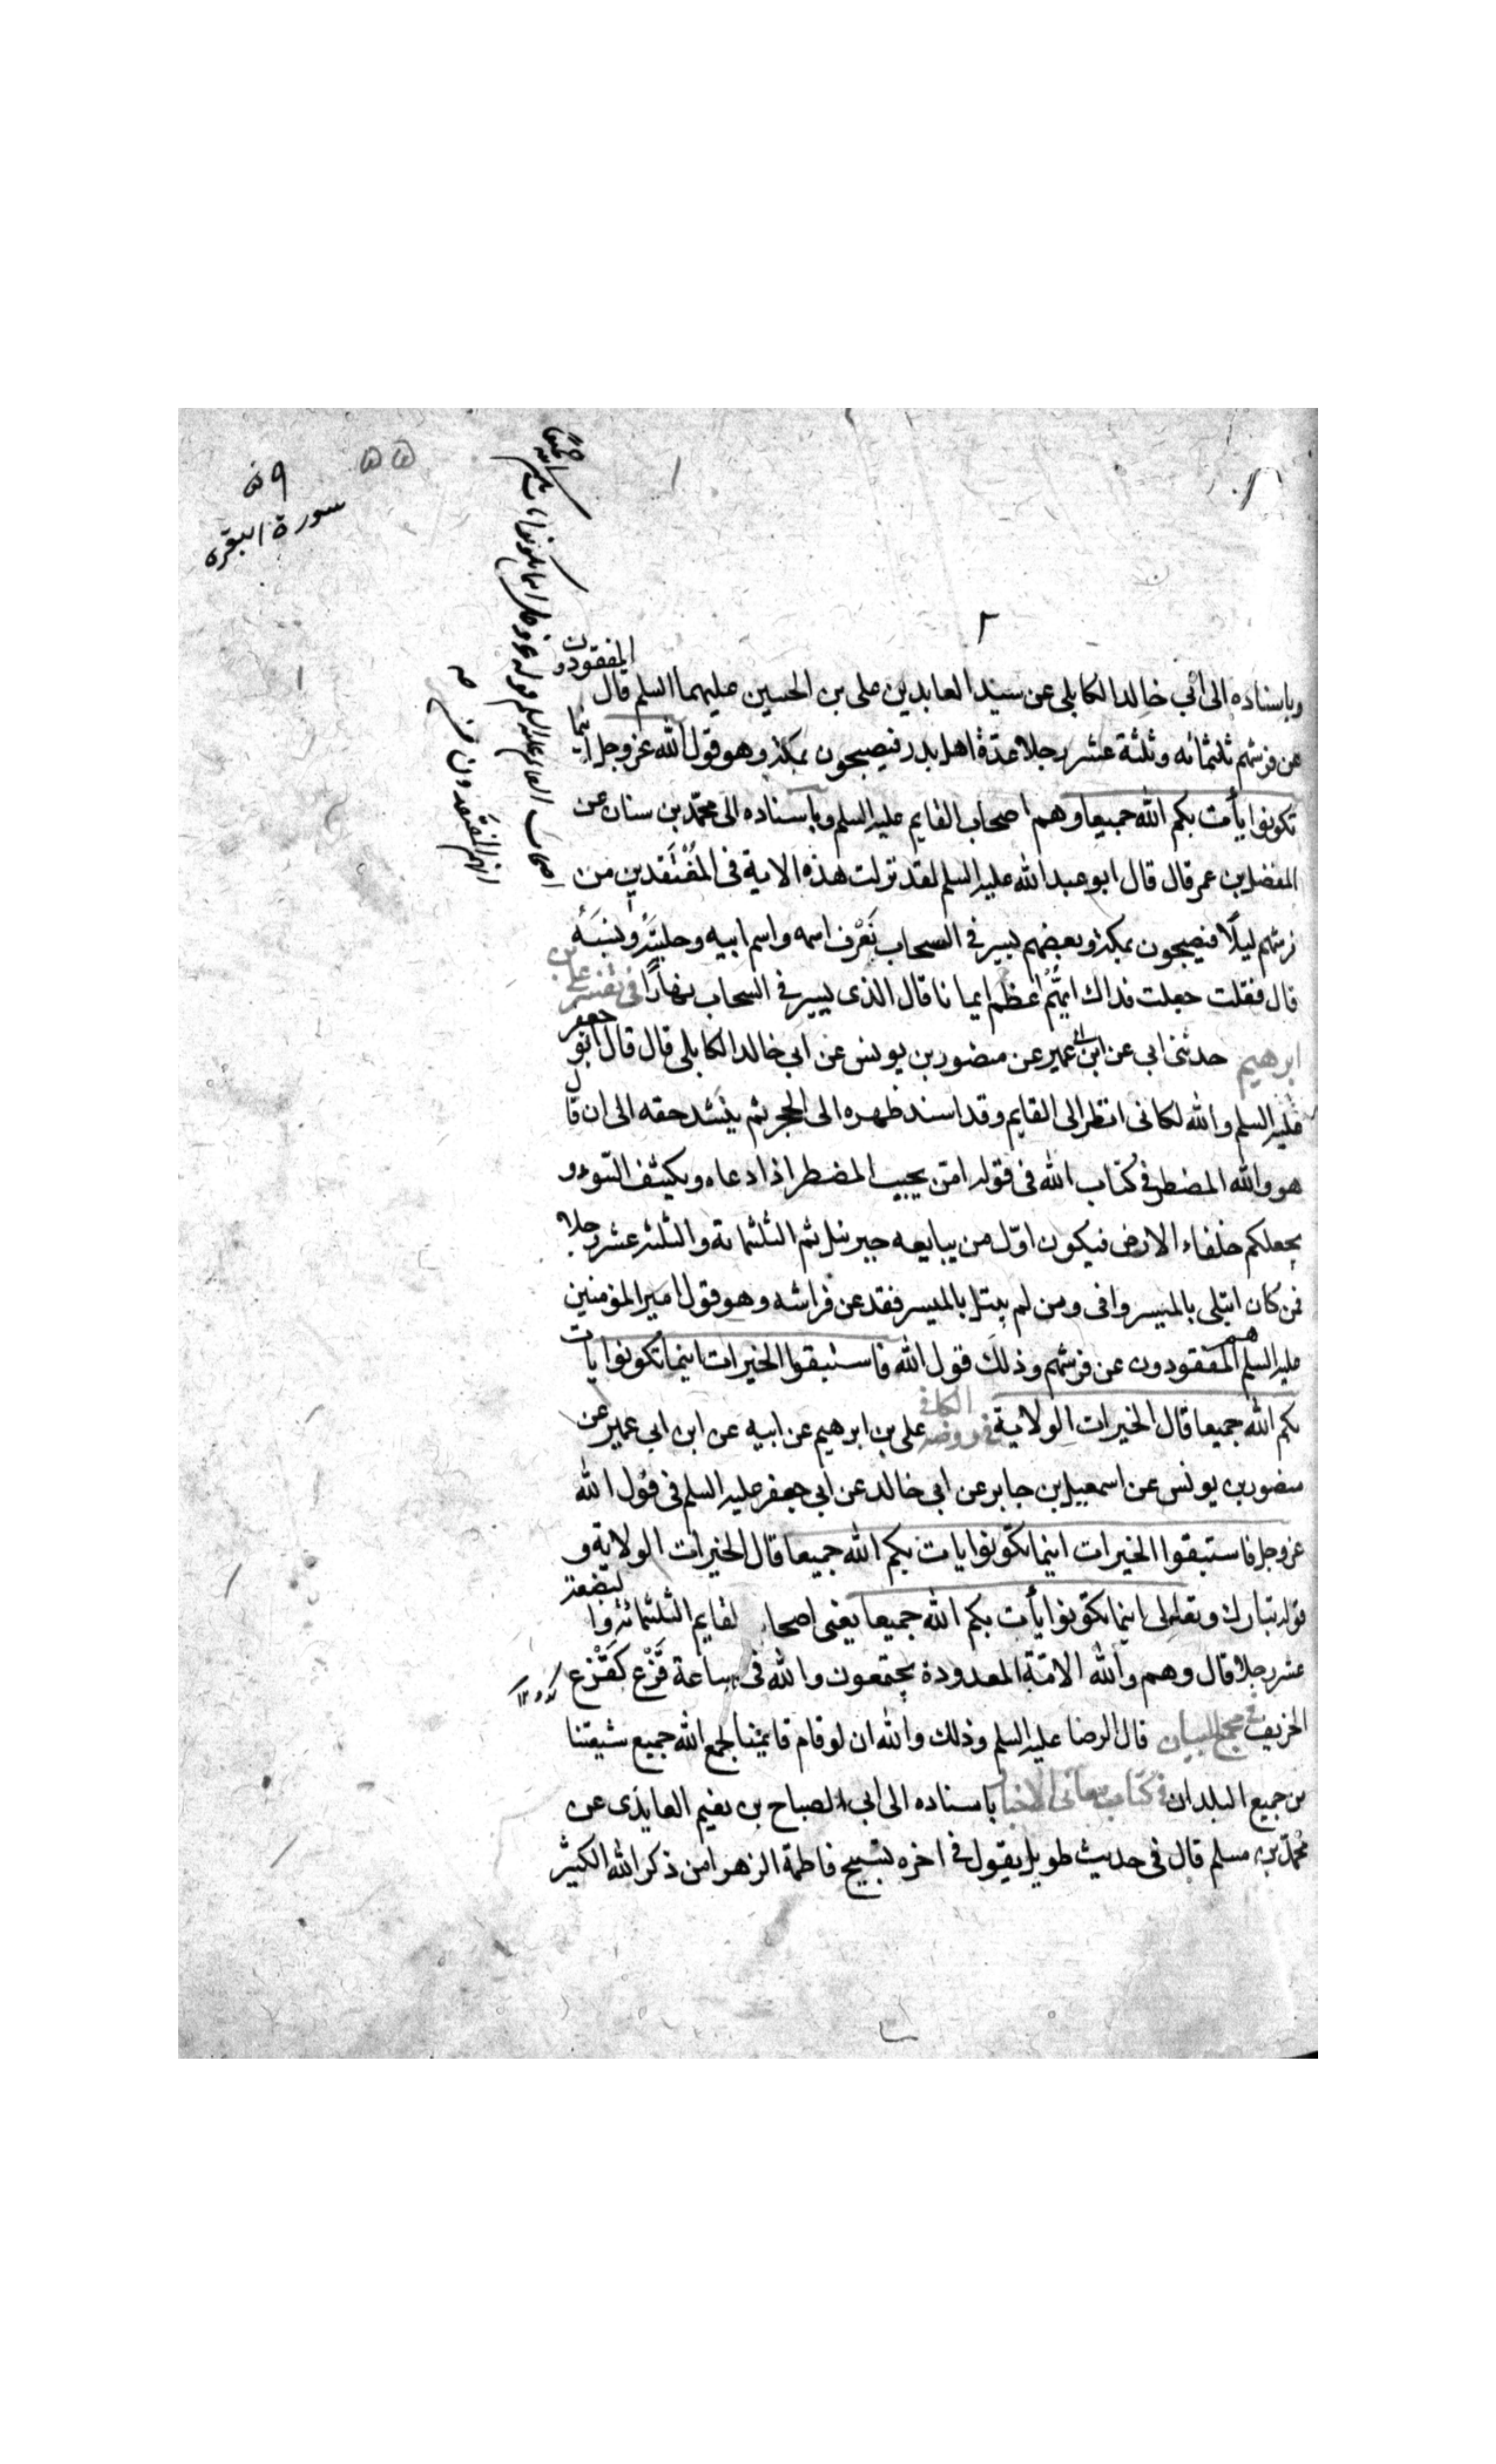 ٥٩
سورة البقره
٥٥
٢
وباسناده الى ابي خالد الكابلى عن سيد العابدين على بن الحسين عليهما السلم قال المفقودون
عن فرشهم ثلثمائه وثلثة عشر رجلا عدة اهل بدر فيصبحون بمكة وهو قول الله عز وجل اينما
تكونوا يأت بكم الله جميعا وهم اصحاب القايم عليه السلم وباسناده الى محمد بن سنان عن
المفضل بن عمر قال قال ابو عبد الله عليه السلم لقد نزلت هذه الاية فى المفتقدين من
فرشهم ليلًا فيصبحون بمكة وبعضهم يسير فى السحاب نعرف اسمه واسم ابيه وحليته ونسبه
قال فقلت جعلت فداك ايهم اعظم ايمانا قال الذى يسير فى السحاب نهارًا فى تفسير على بن
ابرهيم حدثنى ابى عن ابن ابى عمير عن منصور بن يونس عن ابى خالد الكابلى قال قال ابو جعفر
عليه السلم والله لكانى انظر الى القايم وقد اسند ظهره الى الحجر ثم ينشد حقه الى ان قال
هو والله المضطر فى كتاب الله فى قوله امّن يجيب المضطر اذا دعاه ويكشف السّوء و
يجعلكم خلفاء الارض فيكون اوّل من يبايعه جبرئيل ثم الثلثمائة والثلثة عشر رجلا
فمن كان ابتلى بالمسير وافى ومن لم يبتل بالمسير فقد عن فراشه وهو قول امير المؤمنين
عليه السلم هم المفقودون عن فرشهم وذلك قول الله فاستبقوا الخيرات اينما تكونوا يأت
بكم الله جميعا قال الخيرات الولاية فى روضة الكافى على بن ابرهيم عن ابيه عن ابن ابى عمير عن
منصور بن يونس عن اسمعيل بن جابر عن ابى خالد عن ابى جعفر عليه السلم فى قول الله
عز وجل فاستبقوا الخيرات اينما تكونوا يات بكم الله جميعا قال الخيرات الولاية و
قوله تبارك وتعالى اينما تكونوا يأت بكم الله جميعا يعنى اصحاب القايم الثلثمائة والبضعة
عشر رجلا قال وهم والله الامّة المعدودة يجتمعون والله فى ساعة قزع كقزع
الخريف فى مجمع البيان قال الرضا عليه السلم وذلك والله ان لو قام قايمنا لجمع الله جميع شيعتنا
من جميع البلدان فى كتاب معانى الاخبار باسناده الى ابى الصباح بن نعيم العايذى عن
محمّد بن مسلم قال فى حديث طويل يقول فى اخره تسبيح فاطمة الزهرا من ذكر الله الكثير
اصحاب القايم عليه السلم قوله عز وجل اينما تكونوا يات بكم الله جميعًا
انهم المفتقدون